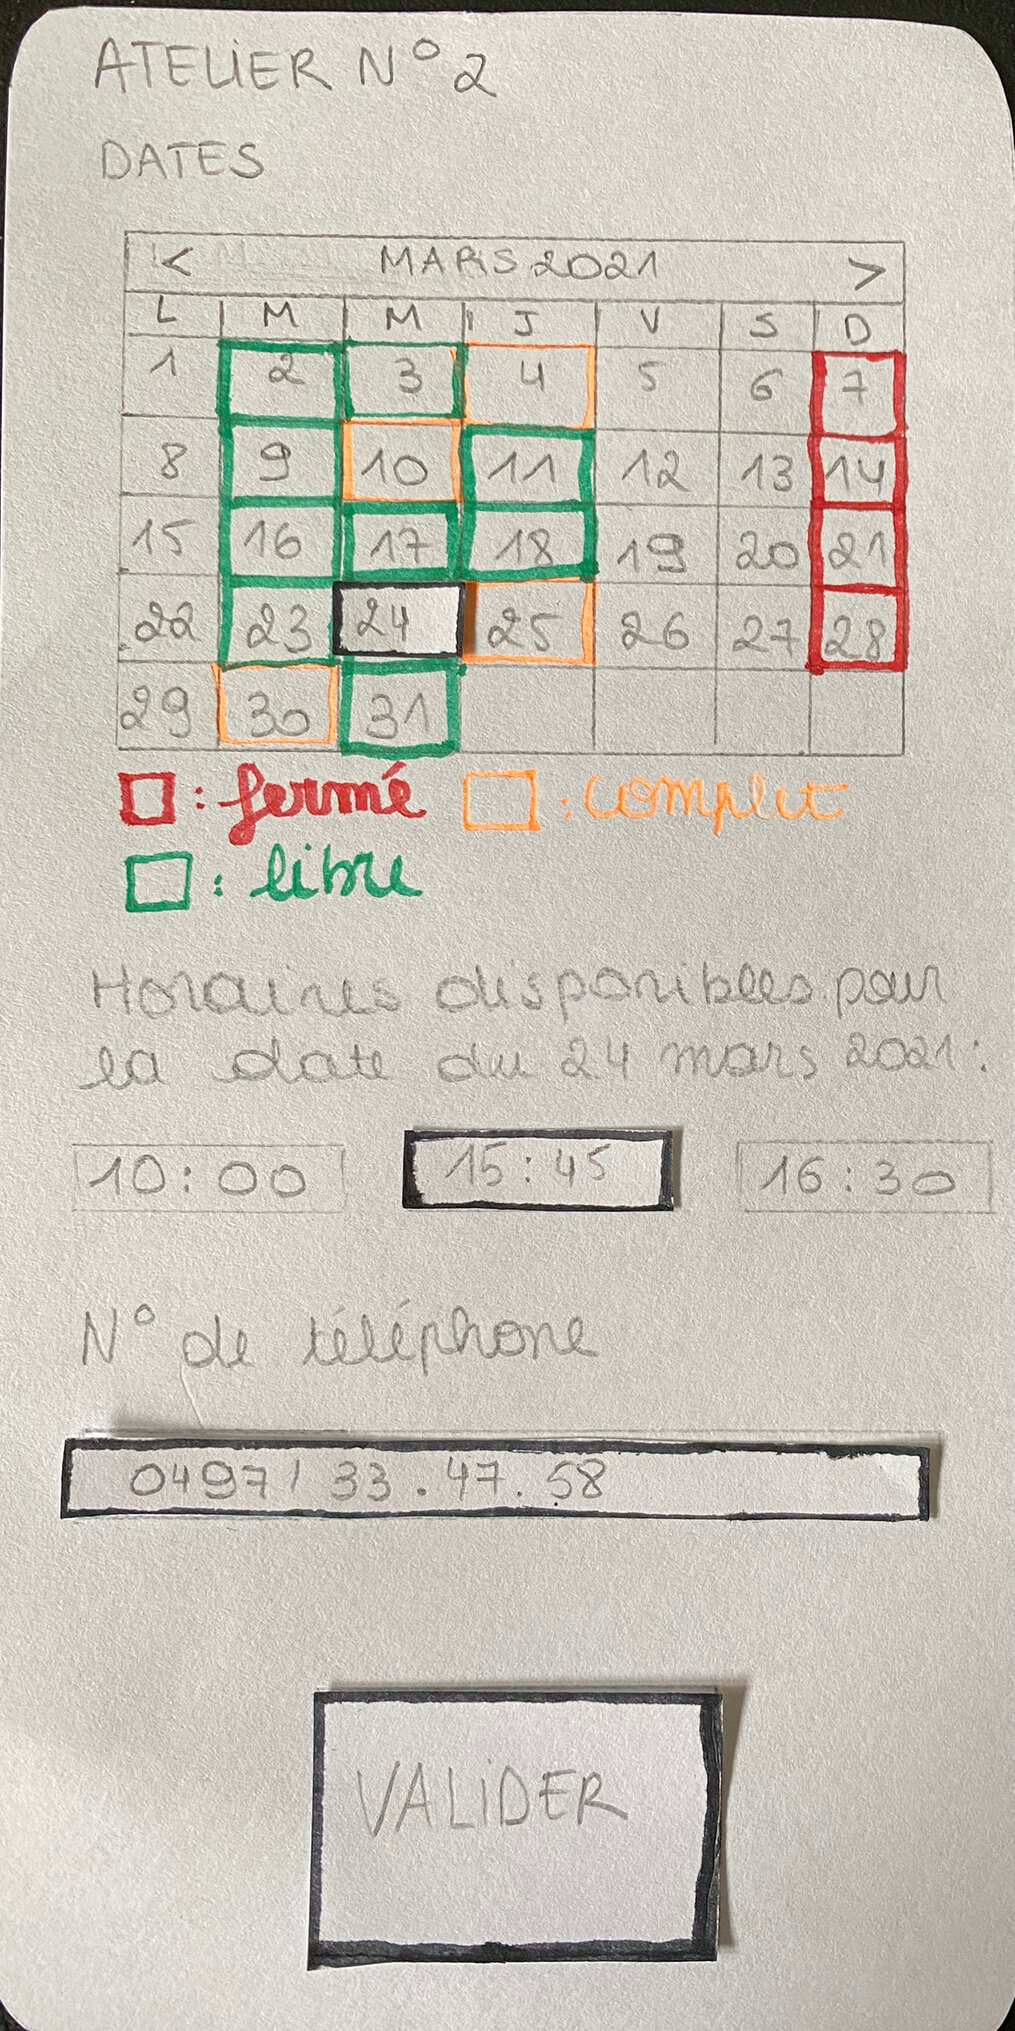 ATELIER N° 2
DATES
< MARS 2021 >
L M M J V S D
1 2 3 4 5 6 7
8 9 10 11 12 13 14
15 16 17 18 19 20 21
22 23 24 25 26 27 28
29 30 31
: fermé : complet
: libre
Horaires disponibles pour
la date du 24 mars 2021 :
10:00 15:45 16:30
N° de téléphone
0497/33.47.58
VALIDER